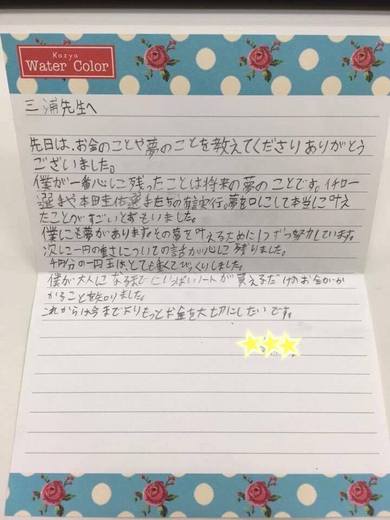 Kazya
Water Color
三浦先生へ
先日は、お金のことや夢のことを教えてくださりありがとう
ございました。
僕が一番心に残ったことは将来の夢のことです。イチロー
選手や本田圭佑選手たちの有言実行。夢を口にして本当に叶え
たことがすごいとおもいました。
僕にも夢があります。その夢を叶えるために1つずつ努力しています。
次に一円の重さについての話が心に残りました。
千円分の一円玉はとても重くてびっくりしました。
僕が大人になるまでにいっぱいノートが買えるだけのお金がか
かることを知りました。
これからは今までよりもっとお金を大切にしたいです。